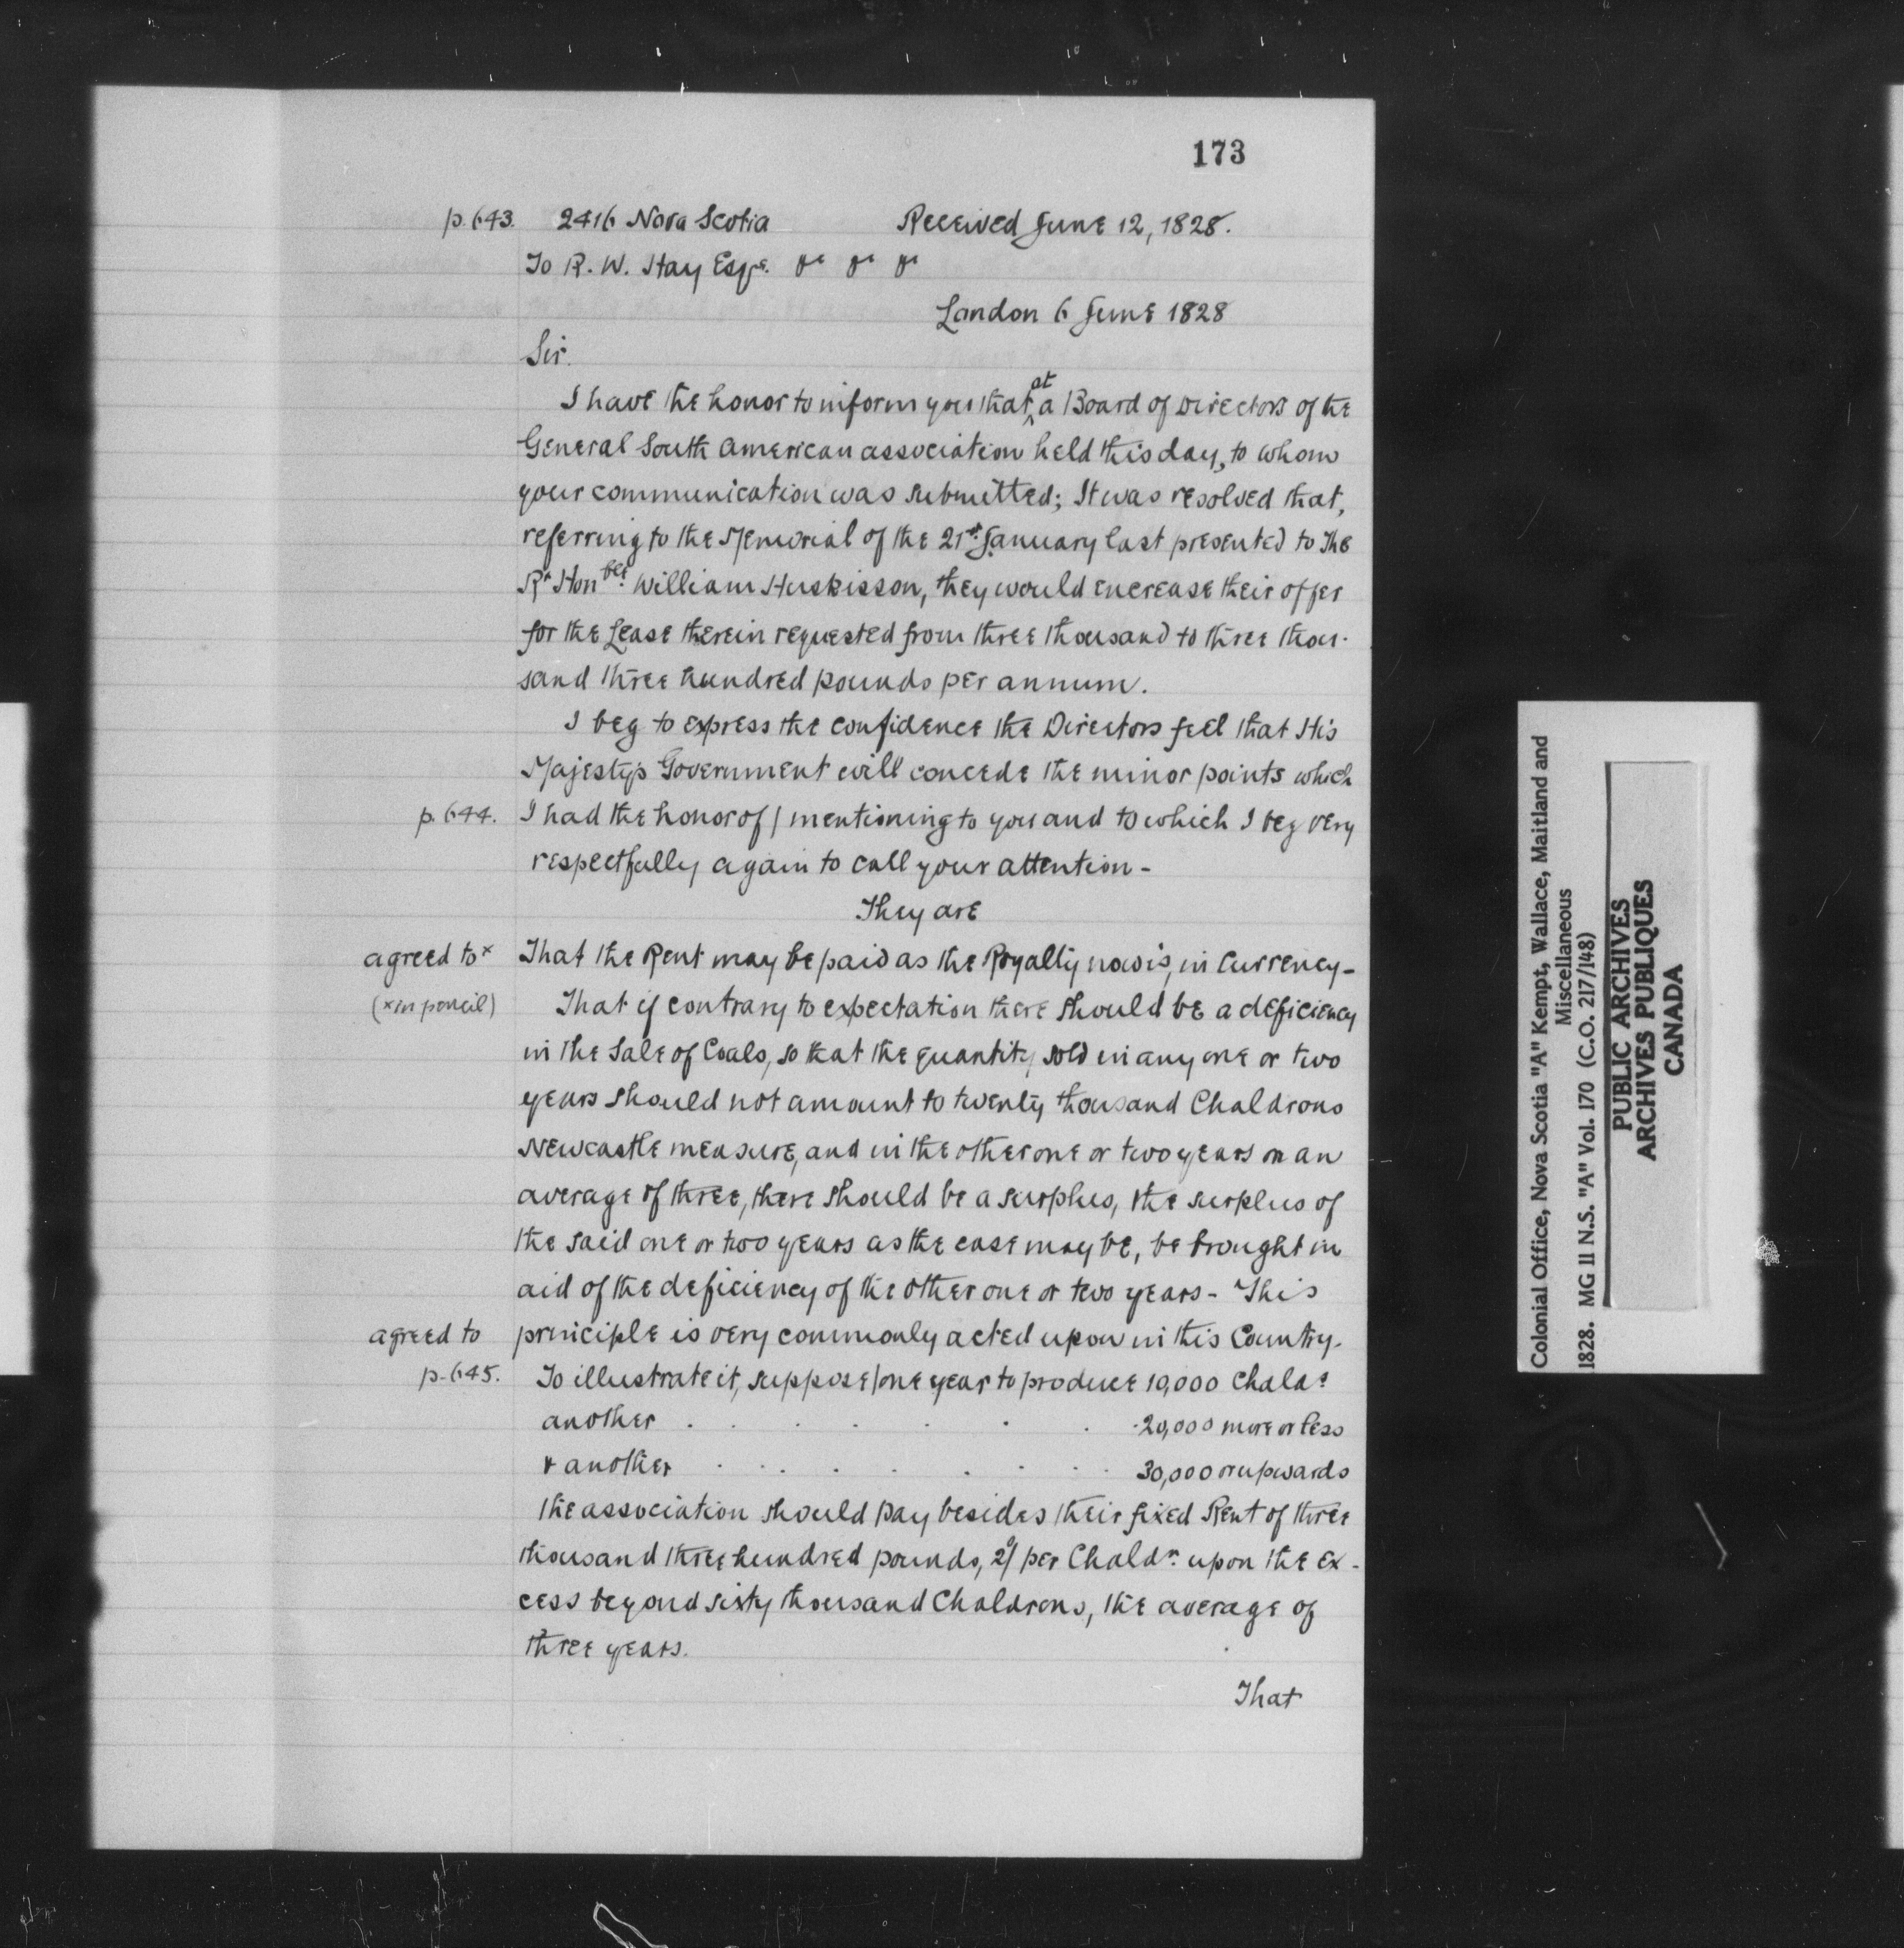 173
p. 643. 2416 Nova Scotia Received June 12, 1828.
To R. W. Hay Esqre. &c &c &c
London 6 June 1828
Sir.
I have the honor to inform you that at a Board of Directors of the
General South American association held this day, to whom
your communication was submitted; It was resolved that,
referring to the Memorial of the 21st. January last presented to The
Rt Honble. William Huskisson, they would encrease their offer
for the Lease therein requested from three thousand to three thou-
sand three hundred pounds per annum.
I beg to express the confidence the Directors feel that His
Majesty's Government will concede the minor points which
p. 644. I had the honor of / mentioning to you and to which I beg very
respectfully again to call your attention -
They are
agreed to x That the Rent may be paid as the Royalty now is, in Currency -
(x in pencil) That if contrary to expectation there should be a deficiency
in the Sale of Coals, so that the quantity sold in any one or two
years should not amount to twenty thousand Chaldrons
Newcastle measure, and in the other one or two years on an
average of three, there should be a surplus, the surplus of
the said one or two years as the case may be, be brought in
aid of the deficiency of the other one or two years - This
agreed to principle is very commonly acted upon in this Country.
p. 645. To illustrate it, suppose / one year to produce 10,000 Chalds
another . . . . . . 20,000 more or less
& another . . . . . . . 30,000 or upwards
the association should pay besides their fixed Rent of three
thousand three hundred pounds, 2/ per Chaldn. upon the ex-
cess beyond sixty thousand Chaldrons, the average of
three years.
That
Colonial Office, Nova Scotia "A" Kempt, Wallace, Maitland and
Miscellaneous
1828. MG 11 N.S. "A" Vol. 170 (C.O. 217/148)
PUBLIC ARCHIVES
ARCHIVES PUBLIQUES
CANADA